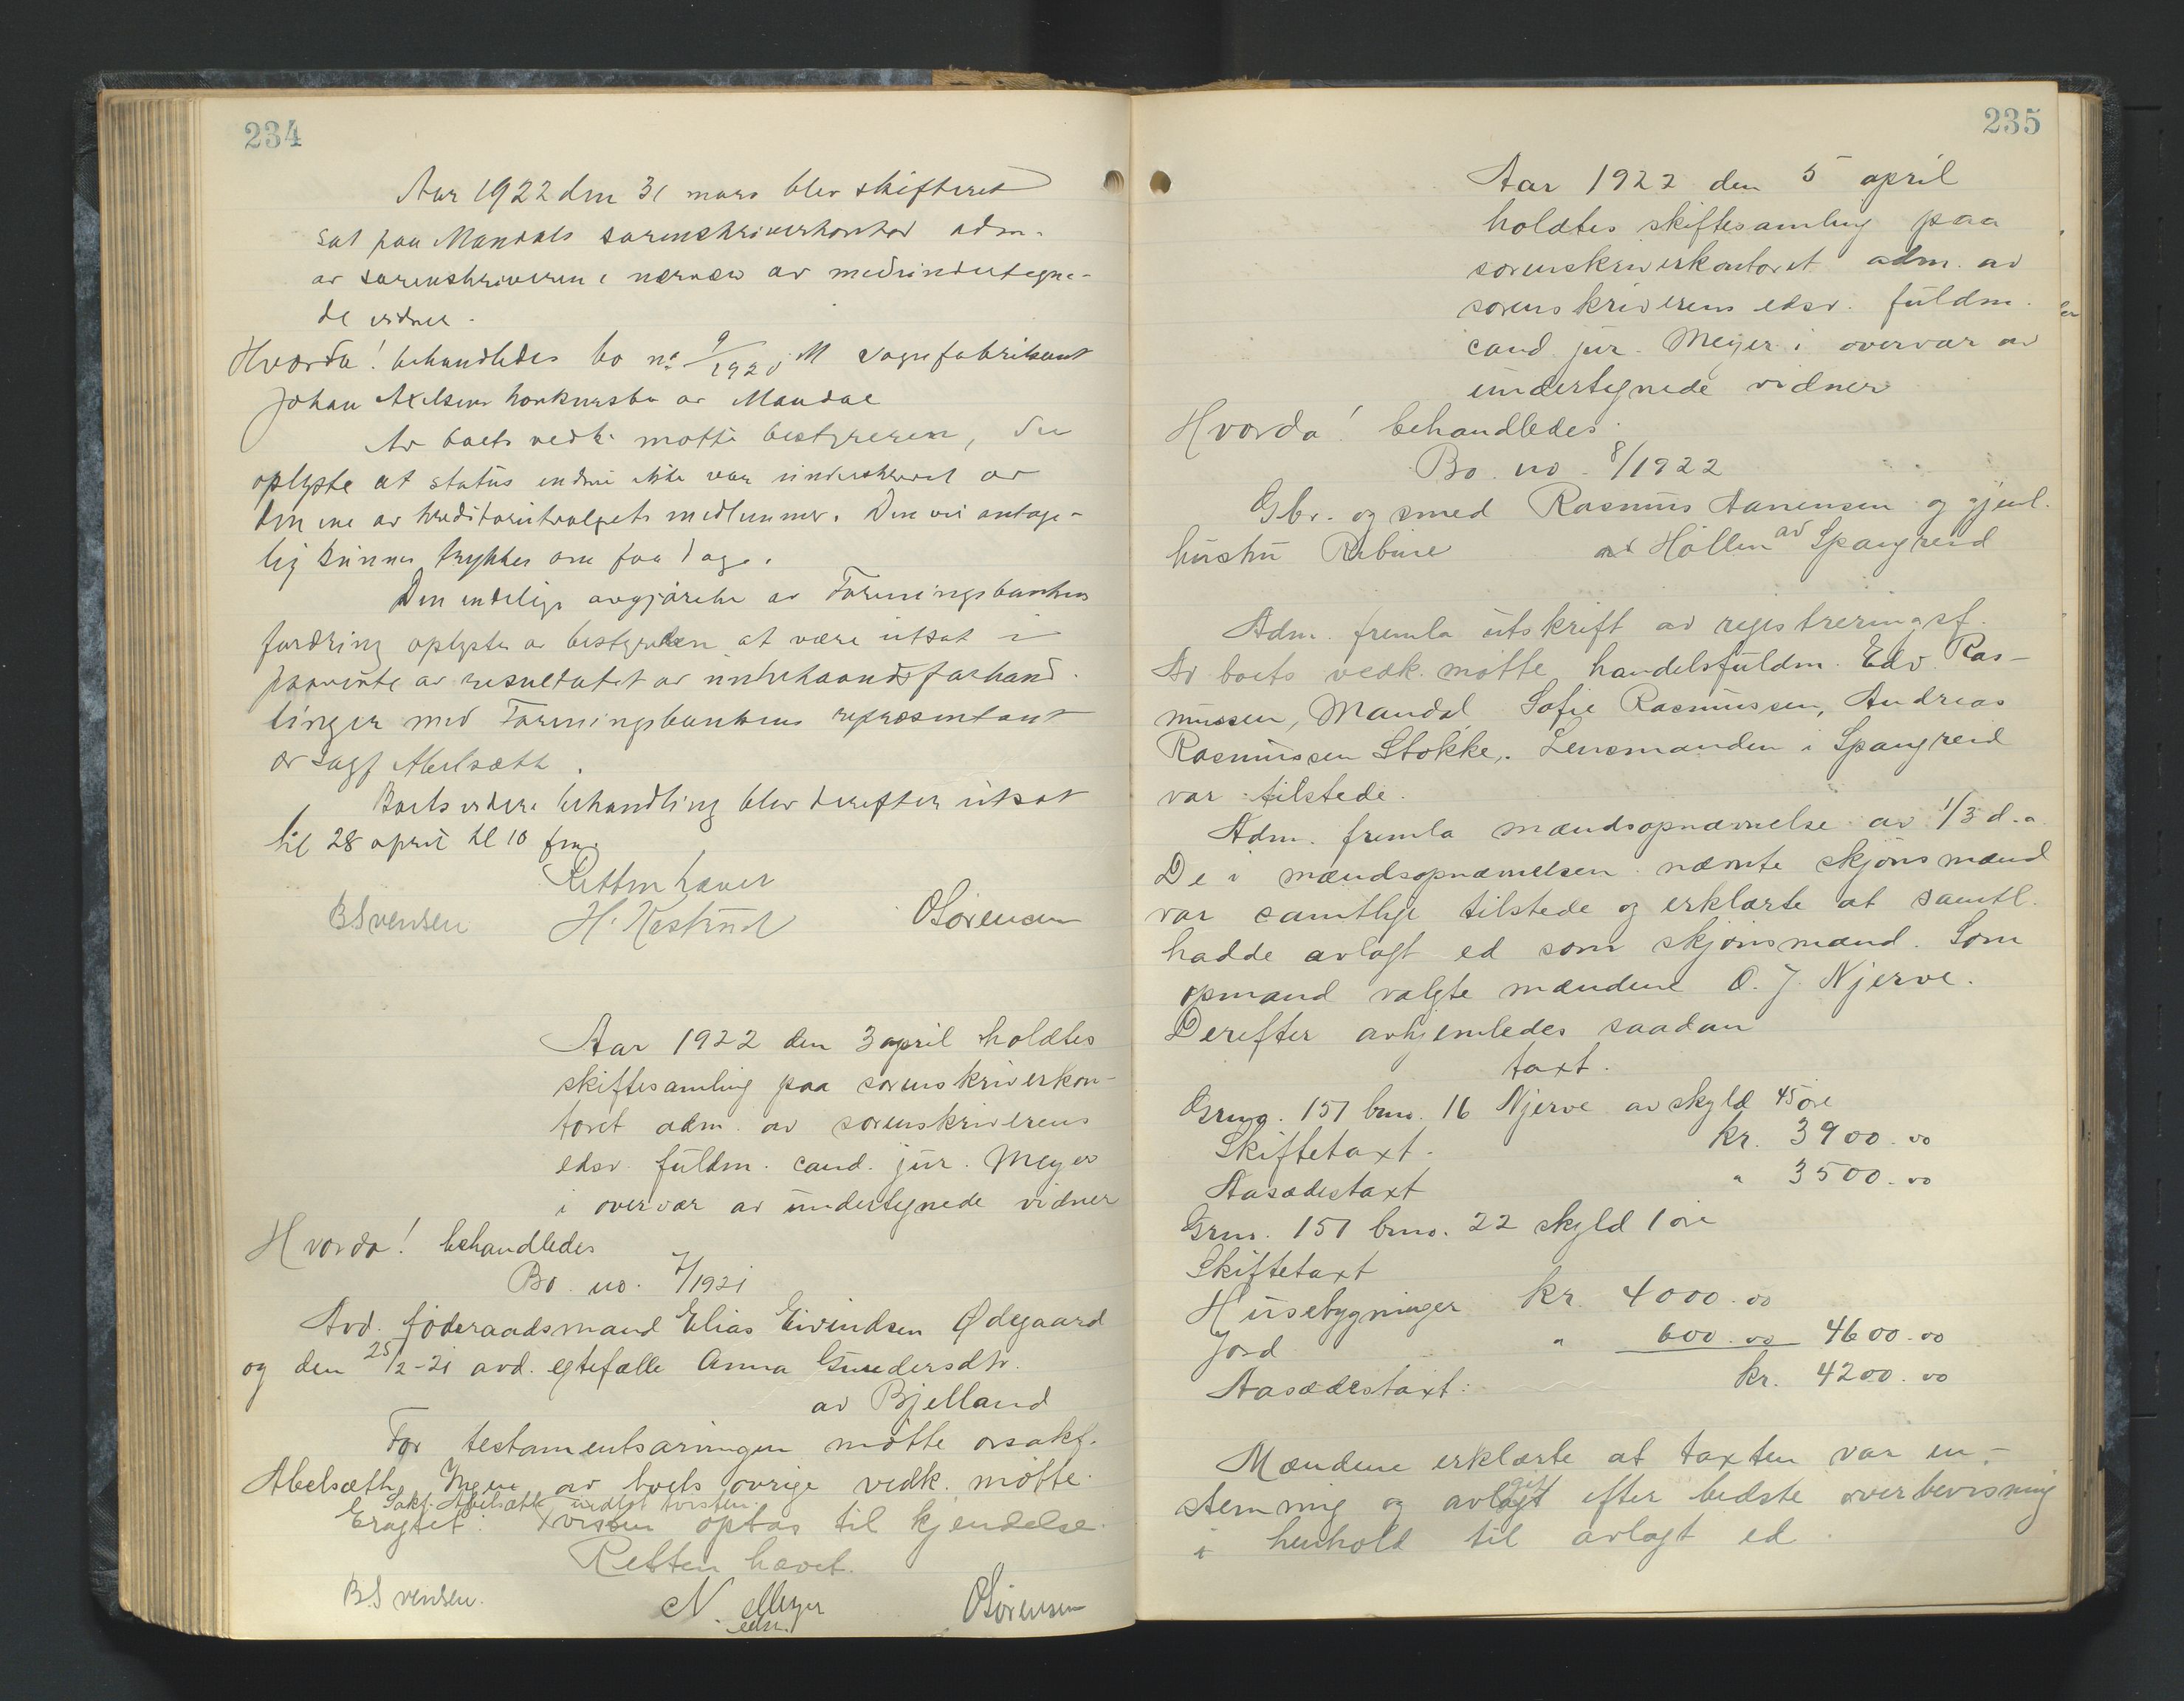 234
Aar 1922 den 31 mars blev skifteret
sat paa Mandals sorenskriverkontor adm.
av sorenskriveren i nærvær av medundertegne-
de vidner.
Hvorda! behandledes bo no 9/1920 M vognfabrikant
Johan Axelsens konkursbo av Mandal
Av boets vedk. møtte bestyreren, der
oplyste at status endnu ikke var underskrevet av
den ene av kreditorutvalgets medlemmer. Den vil antage-
lig kunne trykkes om faa dage.
Den endelige avgjørelse av Foreningsbankens
fordring oplystes av bestyreren at være utsat i
paavente av resultatet av underhaandsforhand-
linger med Foreningsbankens repræsentant
or sagf Abelsæth.
Boets videre behandling blev derefter utsat
til 28 april kl 10 fm.
Retten hævet
BSvensen H. Kostrud OSørensen
Aar 1922 den 3 april holdtes
skiftesamling paa sorenskriverkon-
toret adm. av sorenskriverens
edsv. fuldm. cand. jur. Meyer
i overvær av undertegnede vidner
Hvorda! behandledes
Bo. no. 7/1921
Avd. føderaadsmand Elias Eivindsen Ødegaard
og den 25/2-21 avd. egtefælle Anna Gundersdtr.
av Bjelland
For testamentsarvingen møtte orsakf.
Abelsæth. Ingen av boets øvrige vedk. møtte.
Sakf. Abelsæth indlot tvisten.
Eragtet: Tvisten optas til kjendelse.
Retten hævet.
BSvensen. N. Meyer OSørensen
edsv.
235
Aar 1922 den 5 april
holdtes skiftesamling paa
sorenskriverkontoret adm. av
sorenskriverens edsv. fuldm.
cand. jur. Meyer i overvær av
undertegnede vidner
Hvorda! behandledes
Bo. no. 8/1922
Gbr. og smed Rasmus Aanensen og gjenl.
hustru Rabine av Høllen av Spangreid
Adm. fremla utskrift av registreringsf.
Av boets vedk. møtte handelsfuldm. Edv. Ras-
mussen, Mandal, Sofie Rasmussen, Andreas
Rasmussen Stokke,. Lensmanden i Spangreid
var tilstede.
Adm. fremla mændsopnævnelse av 1/3 d.a
De i mændsopnævnelsen nævnte skjønsmænd
var samtlige tilstede og erklærte at samtl.
hadde avlagt ed som skjønsmænd. Som
opmand valgte mændene O. J. Njerve.
Derefter avhjemledes saadan
taxt.
Grno. 151 brno. 16 Njerve av skyld 45 øre
Skiftetaxt. kr. 3900.00
Aasædestaxt " 3500.00
Grno. 151 brno. 22 skyld 1 øre
Skiftetaxt
Husebygninger kr. 4000.00
Jord " 600.00 4600.00
Aasædestaxt: kr. 4200.00
Mændene erklærte at taxten var en-
stemmig og avlagt git efter bedste overbevisning
i henhold til avlagt ed.